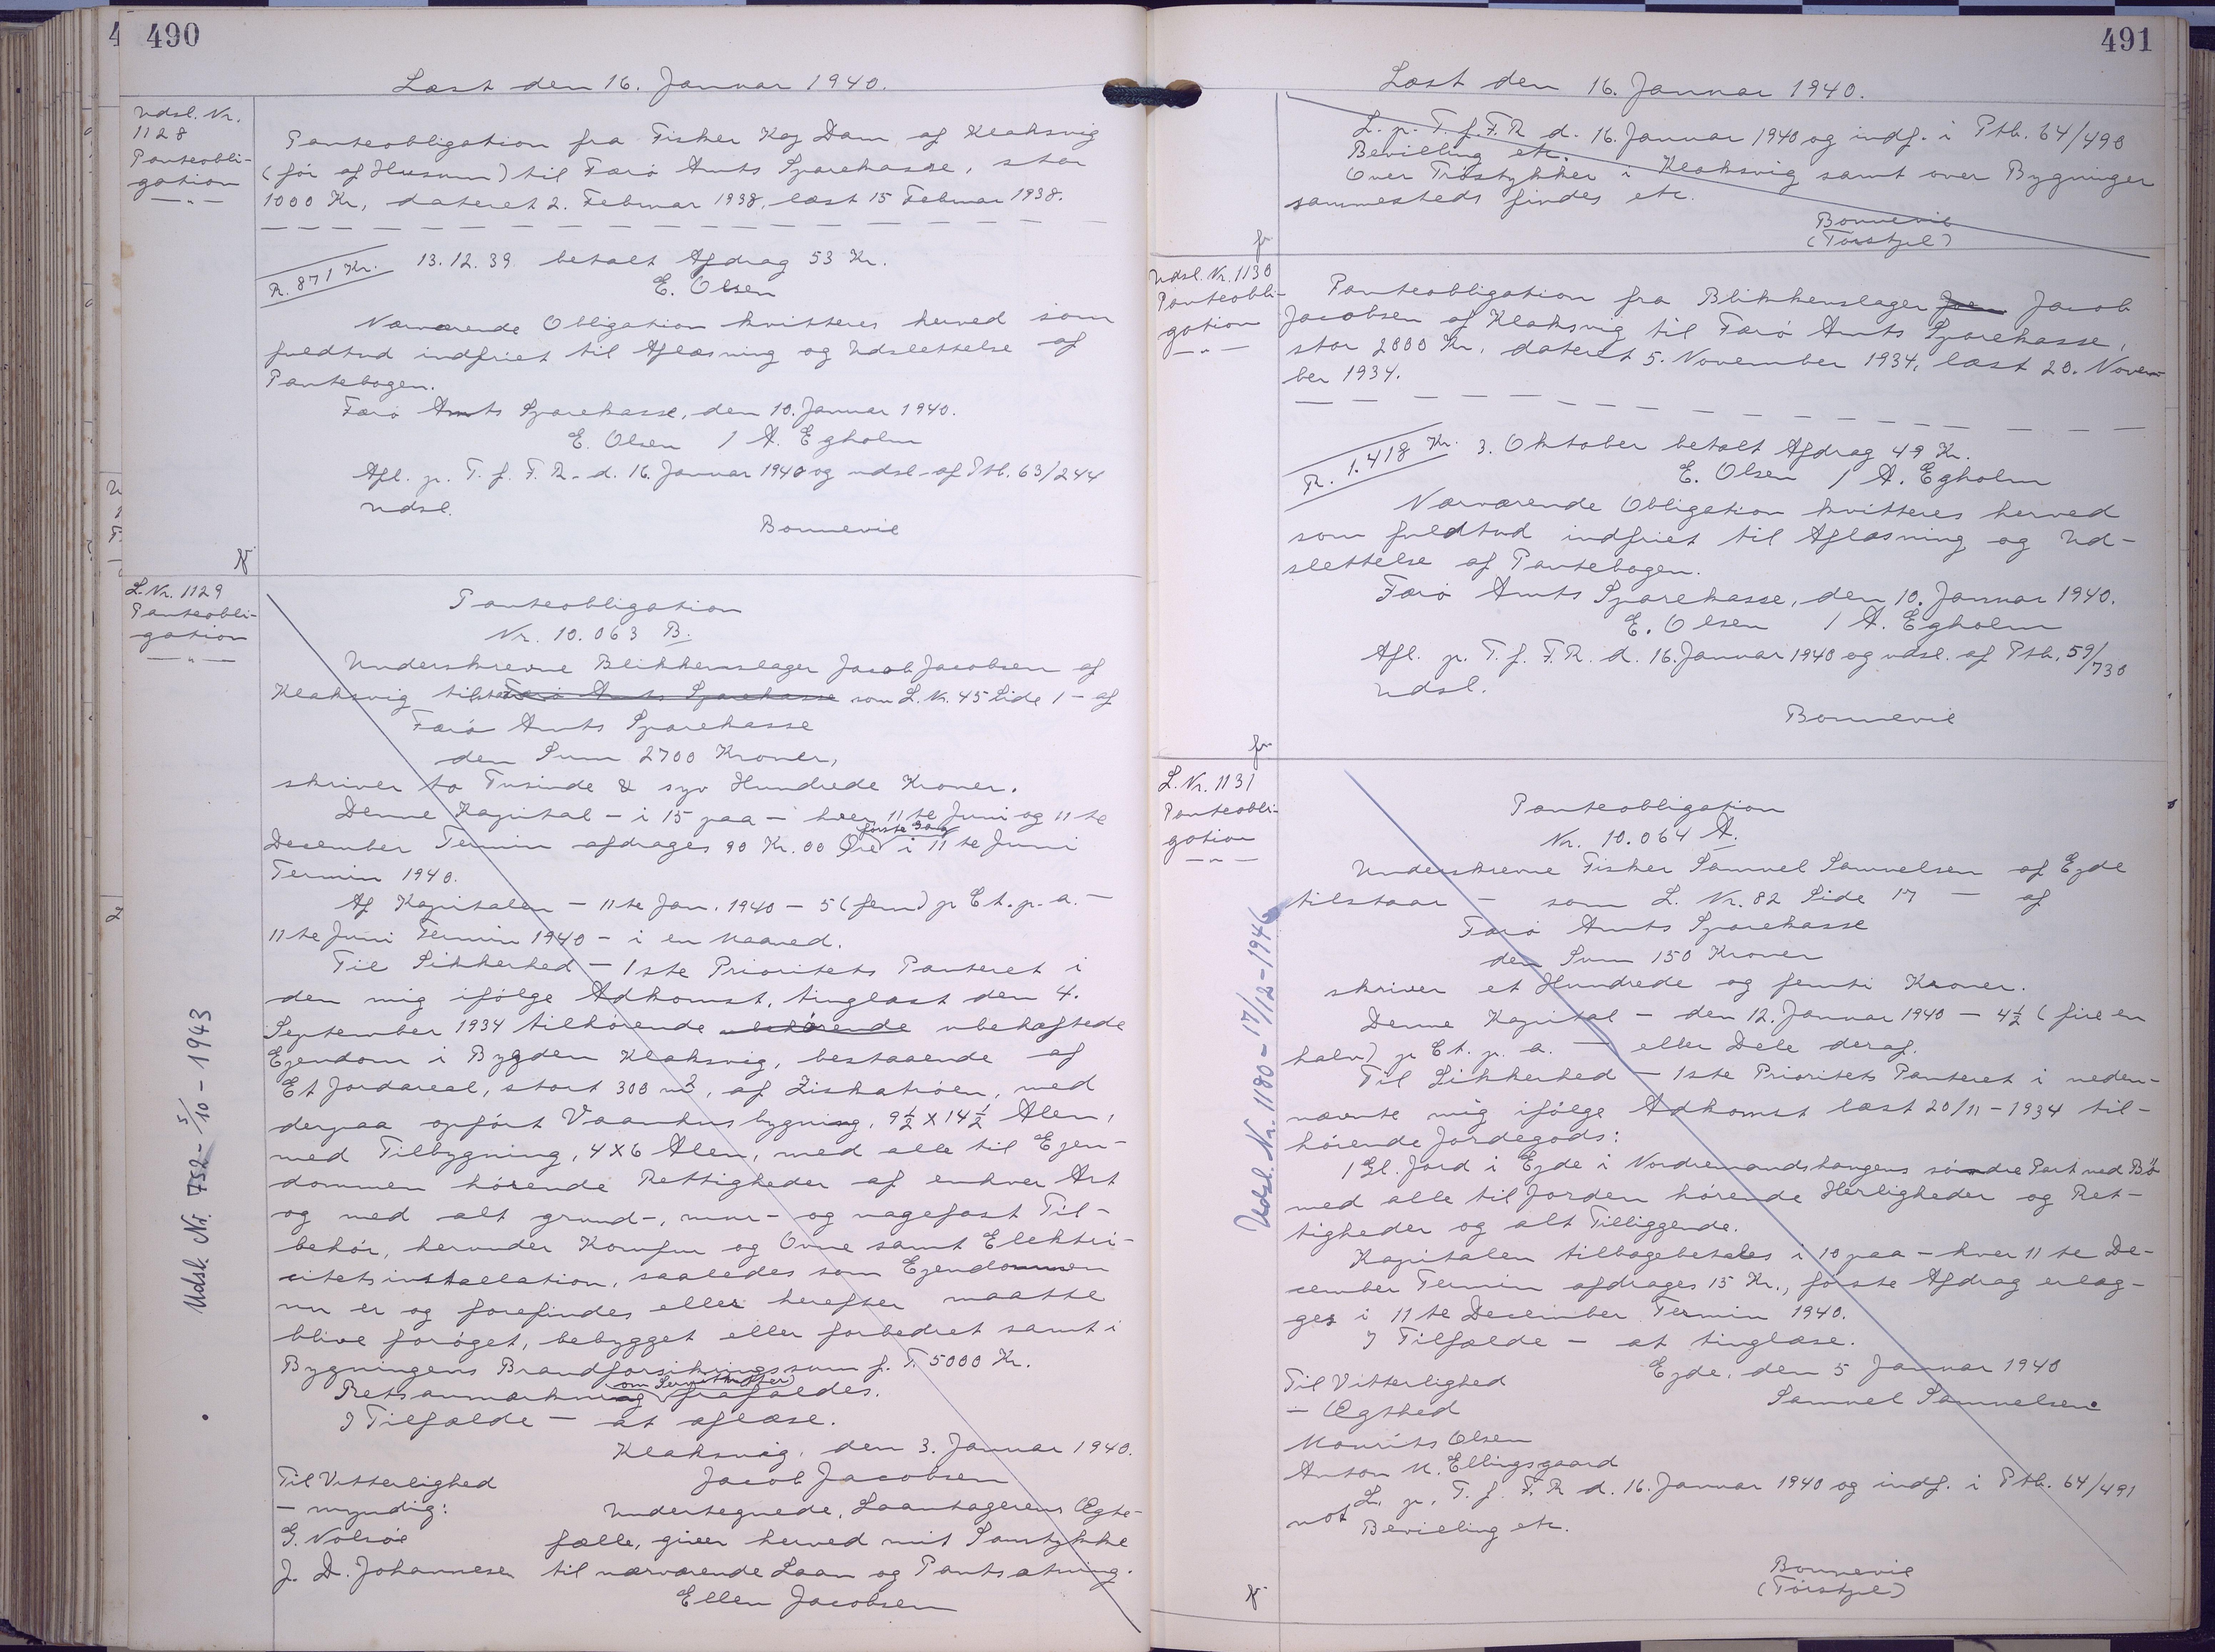 490
Læst den 16. Januar 1940.
Udsl. Nr.
1128
Panteobli-
gation
— " —
Panteobligation fra Fisker Kaj Dam af Klaksvig
(før af Husum) til Færø Amts Sparekasse, stor
1000 Kr., dateret 2. Februar 1938, læst 15 Februar 1938.
R. 871 Kr. 13.12.39 betalt Afdrag 53 Kr.
E. Olsen
Nærværende Obligation kvitteres herved som
fuldtud indfriet til Aflæsning og Udslettelse af
Pantebogen.
Færø Amts Sparekasse, den 10. Januar 1940.
E. Olsen / A. Egholm
Afl. p. T. f. F. R. d. 16. Januar 1940 og udsl. af Ptb. 63/244
Udsl.
Bonnevie
L. Nr. 1129
Panteobli-
gation
— " —
Panteobligation
Nr. 10.063 B.
Underskrevne Blikkenslager Jacob Jacobsen af
Klaksvig tilstaar Færø Amts Sparekasse som L. Nr. 45 Side 1 - af
Færø Amts Sparekasse
den Sum 2700 Kroner,
skriver to Tusinde & syv Hundrede Kroner.
Denne Kapital - i 15 paa - hver 11te Juni og 11te
December Termin afdrages 90 Kr. 00 Øre første Gang i 11te Juni
Termin 1940.
Af Kapitalen - 11te Jan. 1940 - 5 (fem) p Ct. p. a. -
11te Juni Termin 1940 - i en Maaned.
Til Sikkerhed - 1ste Prioritets Panteret i
den mig ifølge Adkomst, tinglæst den 4.
September 1934 tilhørende ubehørende ubehæftede
Ejendom i Bygden Klaksvig, bestaaende af
Et Jordareal, stort 300 m², af Ziskatrøen, med
derpaa opført Vaanhusbygning, 9½ x 14½ Alen,
med Tilbygning, 4 x 6 Alen, med alle til Ejen-
dommen hørende Rettigheder af enhver Art
og med alt grund-, mur- og nagefast Til-
behør, herunder Komfur og Ovne samt Elektri-
citetsinstallation, saaledes som Ejendommen
nu er og forefindes eller herefter maatte
blive forøget, bebygget eller forbedret samt i
Bygningens Brandforsikringssum f. T. 5000 Kr.
Retsanmærkning om Servitutter frafaldes.
I Tilfælde - at aflæse.
Klaksvig, den 3. Januar 1940.
Jacob Jacobsen
Til Vitterlighed
- myndig:
G. Nolsøe
J. D. Johannesen
Undertegnede, Laantagerens Ægte-
fælle, giver herved mit Samtykke
til nærværende Laan og Pantsætning.
Ellen Jacobsen
Udsl. Nr. 752 - 5/10 - 1943
491
Læst den 16. Januar 1940.
L. p. T. f. F. R d. 16. Januar 1940 og indf. i Ptb. 64/490
Bevilling etc.
Over Trøstykker i Klaksvig samt over Bygninger
sammesteds findes etc.
Bonnevie
(Torstjel)
Udsl. Nr. 1130
Panteobli-
gation
— " —
Panteobligation fra Blikkenslager Jacob
Jacobsen af Klaksvig til Færø Amts Sparekasse,
stor 2000 Kr., dateret 5. November 1934, læst 20. Novem-
ber 1934.
R. 1.418 Kr. 3. Oktober betalt Afdrag 49 Kr.
E. Olsen / A. Egholm
Nærværende Obligation kvitteres herved
som fuldtud indfriet til Aflæsning og Ud-
slettelse af Pantebogen.
Færø Amts Sparekasse, den 10. Januar 1940.
E. Olsen / A. Egholm
Afl. p. T. f. F. R. d. 16. Januar 1940 og udsl. af Ptb. 59/730
Udsl.
Bonnevie
L. Nr. 1131
Panteobli-
gation
— " —
Panteobligation
Nr. 10.064 A.
Underskrevne Fisker Samuel Samuelsen af Ejde
tilstaar - som L. Nr. 82 Side 17 - af
Færø Amts Sparekasse
den Sum 150 Kroner
skriver et Hundrede og femti Kroner.
Denne Kapital - den 12. Januar 1940 - 4½ (fire en
halv) p Ct. p. a. - eller Dele deraf.
Til Sikkerhed - 1ste Prioritets Panteret i neden-
nævnte mig ifølge Adkomst læst 20/11 - 1934 til-
hørende Jordegods:
1 Gl. Jord i Ejde i Nordremandshaugens søndre Part ved Bø
med alle til Jorden hørende Herligheder og Ret-
tigheder og alt Tilliggende.
Kapitalen tilbagebetales i 10 paa - hver 11te De-
cember Termin afdrages 15 Kr., første Afdrag erlæg-
ges i 11te December Termin 1940.
I Tilfælde - at tinglæse.
Ejde, den 5 Januar 1940
Samuel Samuelsen
Til Vitterlighed
- Ægthed
Mourits Olsen
Anton M. Ellingsgaard
L. p. T. f. F. R d. 16. Januar 1940 og indf. i Ptb. 64/491
not Bevilling etc.
Bonnevie
(Torstjel)
Udsl. Nr. 1180 - 17/12 - 1946